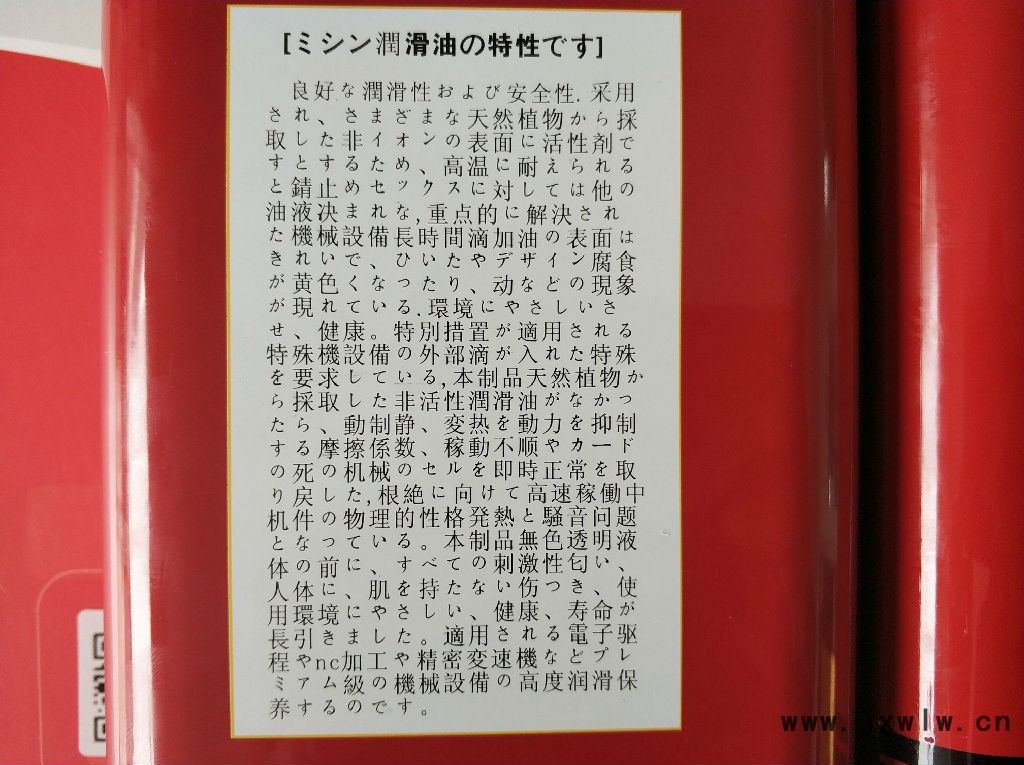 [ミシン潤滑油の特性です]
良好な潤滑性および安全性.采用
され、さまざまな天然植物から採
取した非イオンの表面に活性剤で
すとするため、高温に耐えられる
と錆止めセックスに対しては他の
油液决まれな,重点的に解決され
た機械設備長時間滴加油の表面は
きれいで、ひいたやデザイン腐食
が黄色くなったり、动などの現象
が現れている.環境にやさしいさ
せ、健康。特別措置が適用される
特殊機設備の外部滴が入れた特殊
を要求している,本制品天然植物か
ら採取した非活性潤滑油がなかつ
たら、動制静、変热を動力を抑制
する摩擦係数、稼動不順やカード
の死の机械のセルを即時正常を取
り戻した,根絶に向けて高速稼働中
机件の物理的性格発熱と騒音问题
となつている。本制品無色透明液
体の前に、すべての刺激性匂い、
人体に、肌を持たない伤つき、使
用環境にやさしい、健康、寿命が
長引きました。適用される電子駆
程やnc加工や精密変速機などプレ
ミアム級の機械設備の高度润滑保
养するのです。